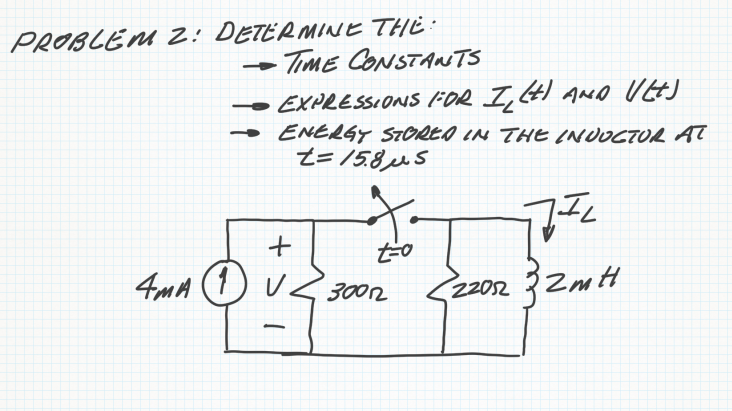 PROBLEM 2: DETERMINE THE:
→ TIME CONSTANTS
→ EXPRESSIONS FOR I_L(t) AND V(t)
→ ENERGY STORED IN THE INDUCTOR AT
t = 15.8 μs
I_L
+
t=0
4mA
V
300Ω
220Ω
2mH
−